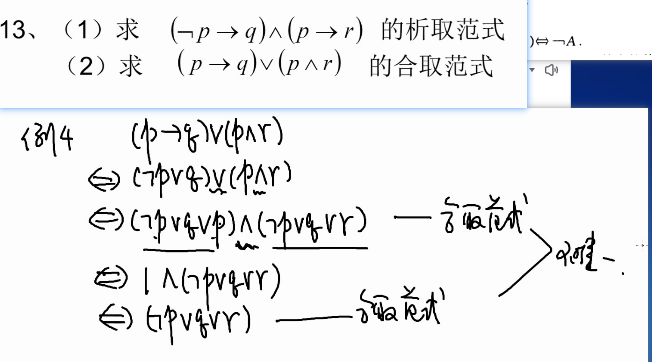 13、（1）求 (¬p→q)∧(p→r) 的析取范式
)⇔¬A.
（2）求 (p→q)∨(p∧r) 的合取范式
例4 (p→q)∨(p∧r)
⇔(¬p∨q)∨(p∧r)
⇔(¬p∨q∨p)∧(¬p∨q∨r) — 合取范式
不唯一.
⇔1∧(¬p∨q∨r)
⇔(¬p∨q∨r) — 合取范式